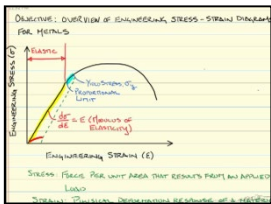 OBJECTIVE: OVERVIEW OF ENGINEERING STRESS-STRAIN DIAGRAMS
FOR METALS
ELASTIC
ENGINEERING STRESS (σ)
YIELD STRESS σy
PROPORTIONAL
LIMIT
dσ/dε = E (MODULUS OF
ELASTICITY)
ENGINEERING STRAIN (ε)
STRESS: FORCE PER UNIT AREA THAT RESULTS FROM AN APPLIED
LOAD
STRAIN: PHYSICAL DEFORMATION RESPONSE OF A MATERIAL